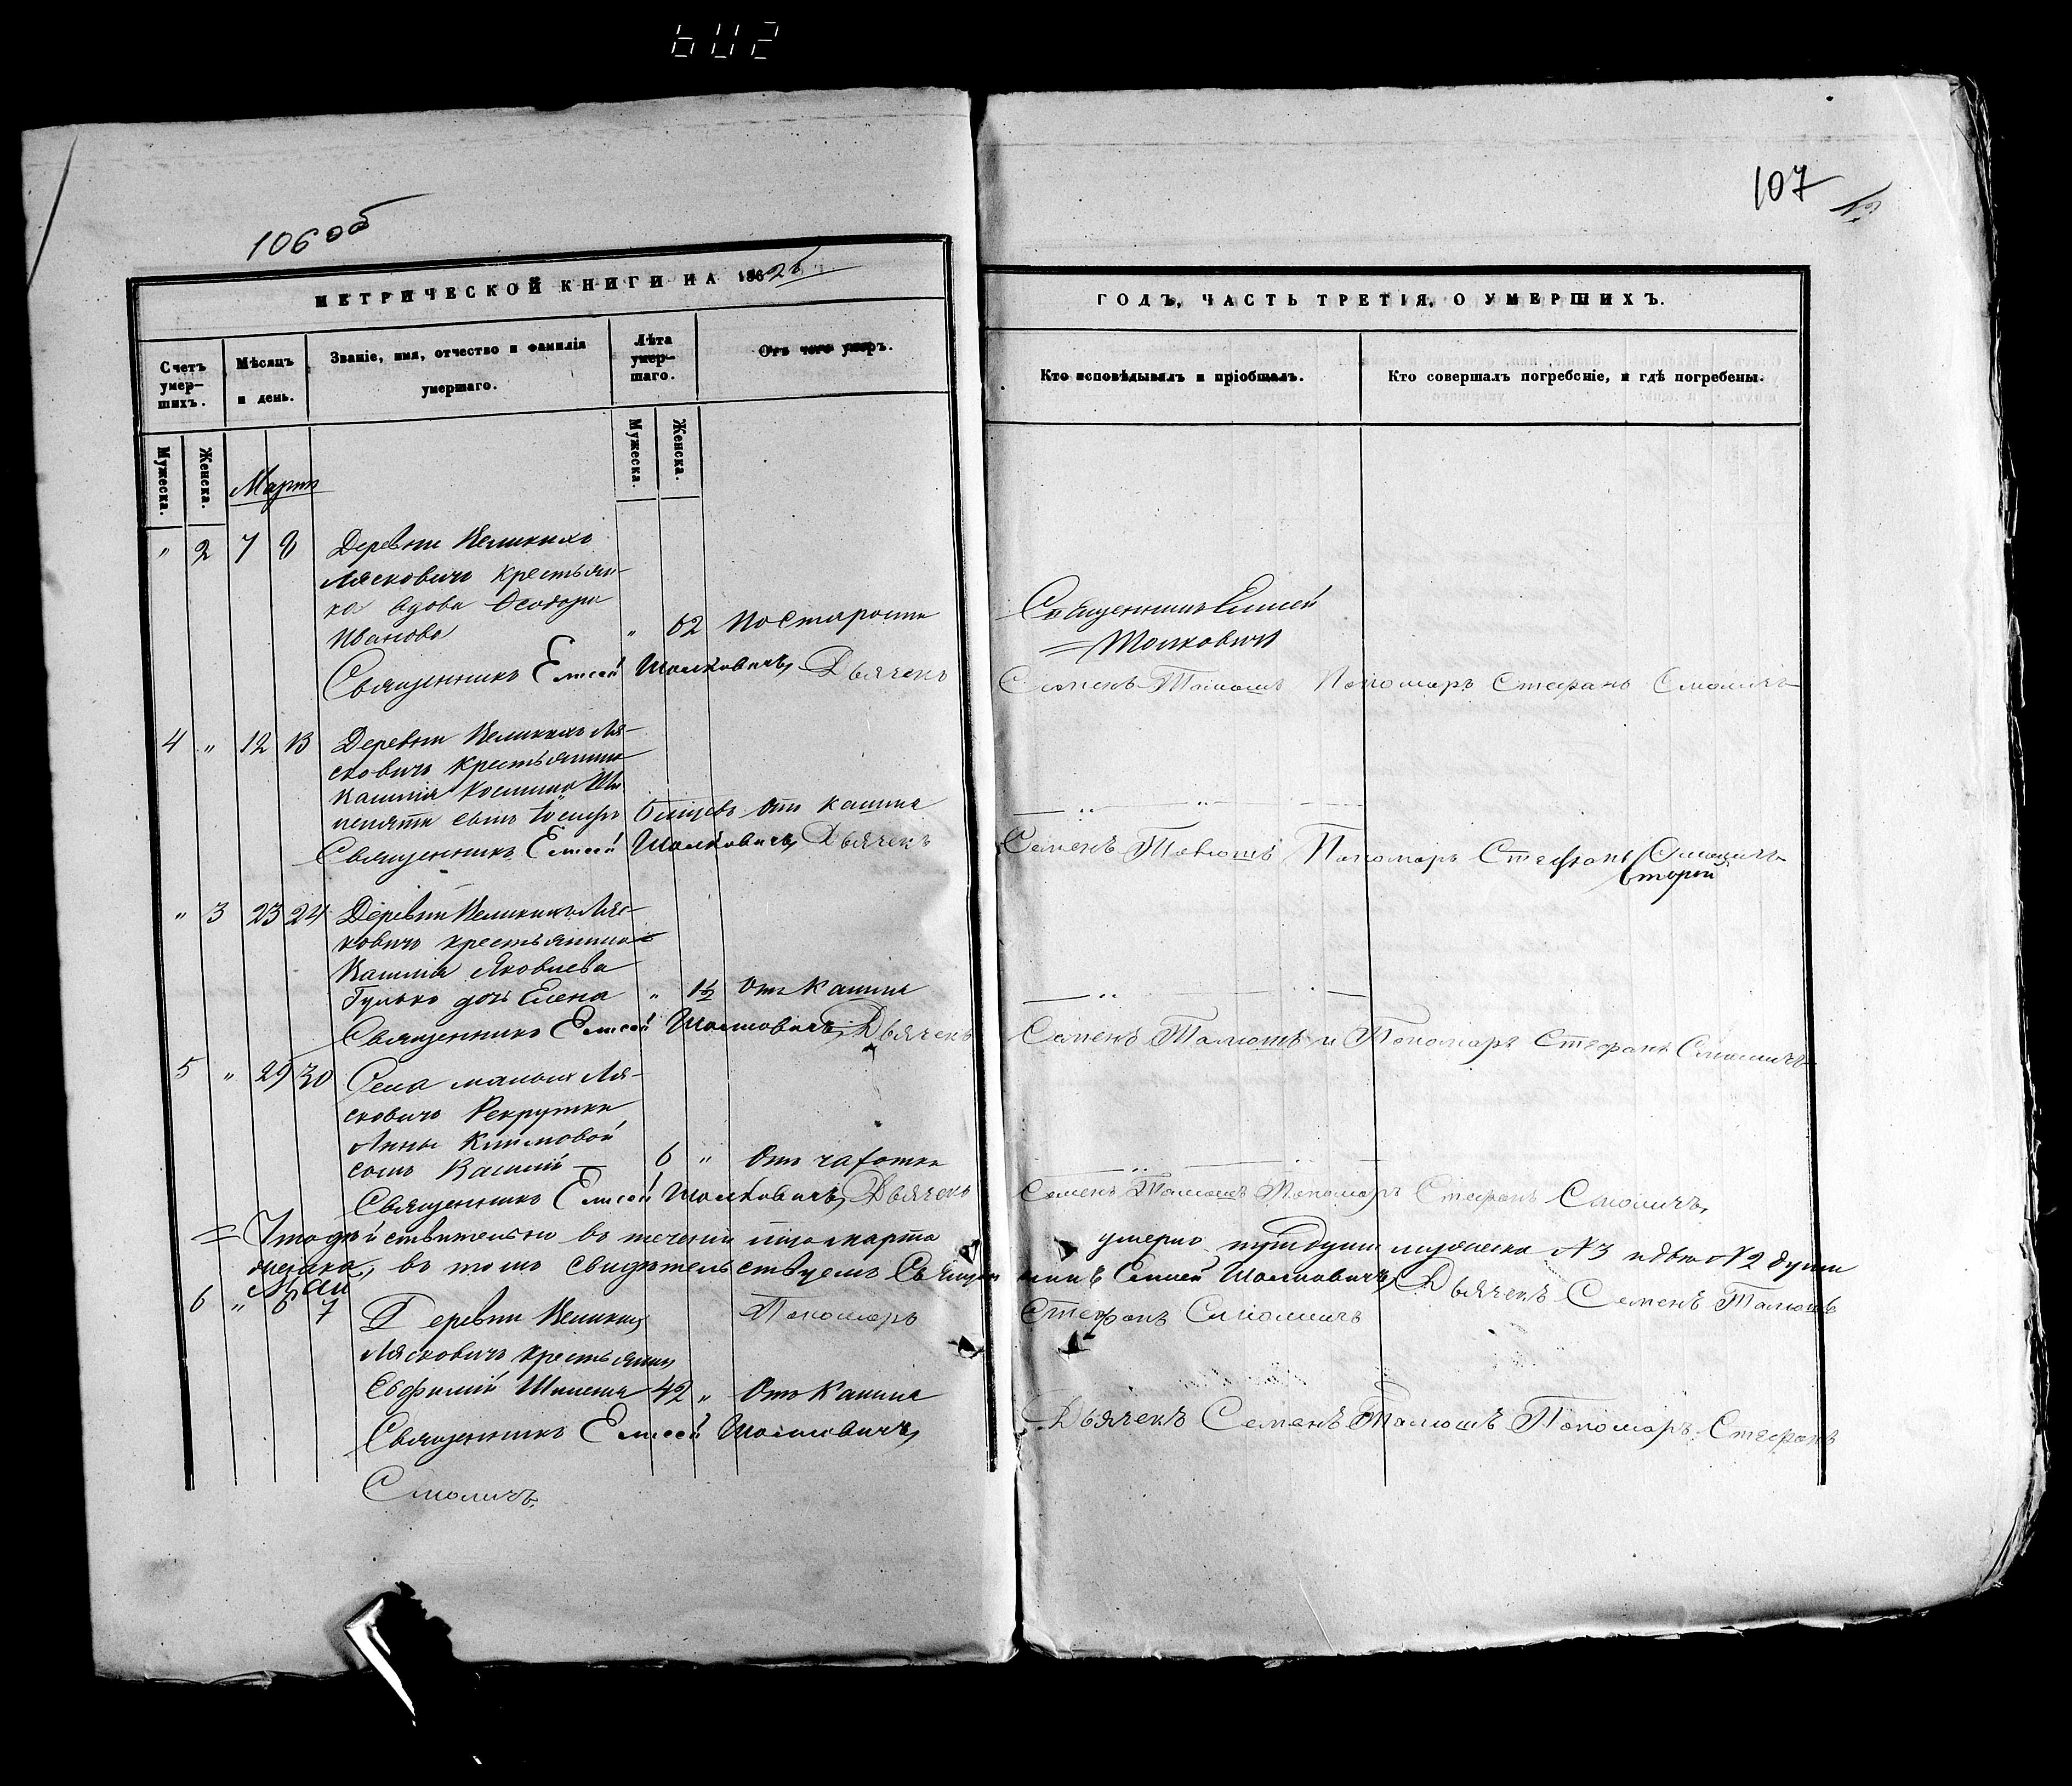 602
106 об
107
МЕТРИЧЕСКОЙ КНИГИ НА 1862й
ГОДЪ, ЧАСТЬ ТРЕТІЯ, О УМЕРШИХЪ.
Счетъ умер-шихъ.
Мѣсяцъ и день.
Званіе, имя, отчество и фамилія умершаго.
Лѣта умер-шаго.
Отъ чего умеръ.
Кто исповѣдывалъ и пріобщалъ.
Кто совершалъ погребеніе, и гдѣ погребены.
Мужеска.
Женска.
Мужеска.
Женска.
Мартъ
" 2 7 8 Деревни Великихъ
Лясковичъ крестьян-
ка вдова Ѳеодора
Иванова " 62 По Старости
Священникъ Елисей
Шолковичъ
Священникъ Елисей Шолковичъ, Дьячекъ
Семенъ Пономарь Стефанъ Смоличъ
4 " 12 13 Деревни Великихъ Ля-
сковичъ крестьянина
сынъ Іосифъ 6 Отъ кашля
Священникъ Елисей Шолковичъ, Дьячекъ
Семенъ Пономарь Стефанъ Смоличъ
второй
" 3 23 24 Деревни Великихъ Ляс-
ковичъ крестьянина
Василія Яковлева
Гулько дочь Елена " Отъ Кашля
Священникъ Елисей Шолковичъ, Дьячекъ
Семенъ и Пономарь Стефанъ Смоличъ
5 " 29 30 Села малыхъ Ля-
сковичъ Рекрутки
Анны Климовой
сынъ Василій 6 " Отъ чахотки
Священникъ Елисей Шолковичъ, Дьячекъ
Семенъ Пономарь Стефанъ Смоличъ,
Что дѣйствительно въ теченіи марта
умерло души мужеска № 3 № 2 души
въ томъ свидѣтельствуемъ Священникъ Елисей Шолковичъ, Дьячекъ Семенъ
Пономарь
Стефанъ Смоличъ
Май
6 " 6 7 Деревни Великихъ
Лясковичъ крестьянинъ
Евфимій 42 " Отъ Кашля
Священникъ Елисей Шолковичъ,
Дьячекъ Семенъ Пономарь Стефанъ
Смоличъ.